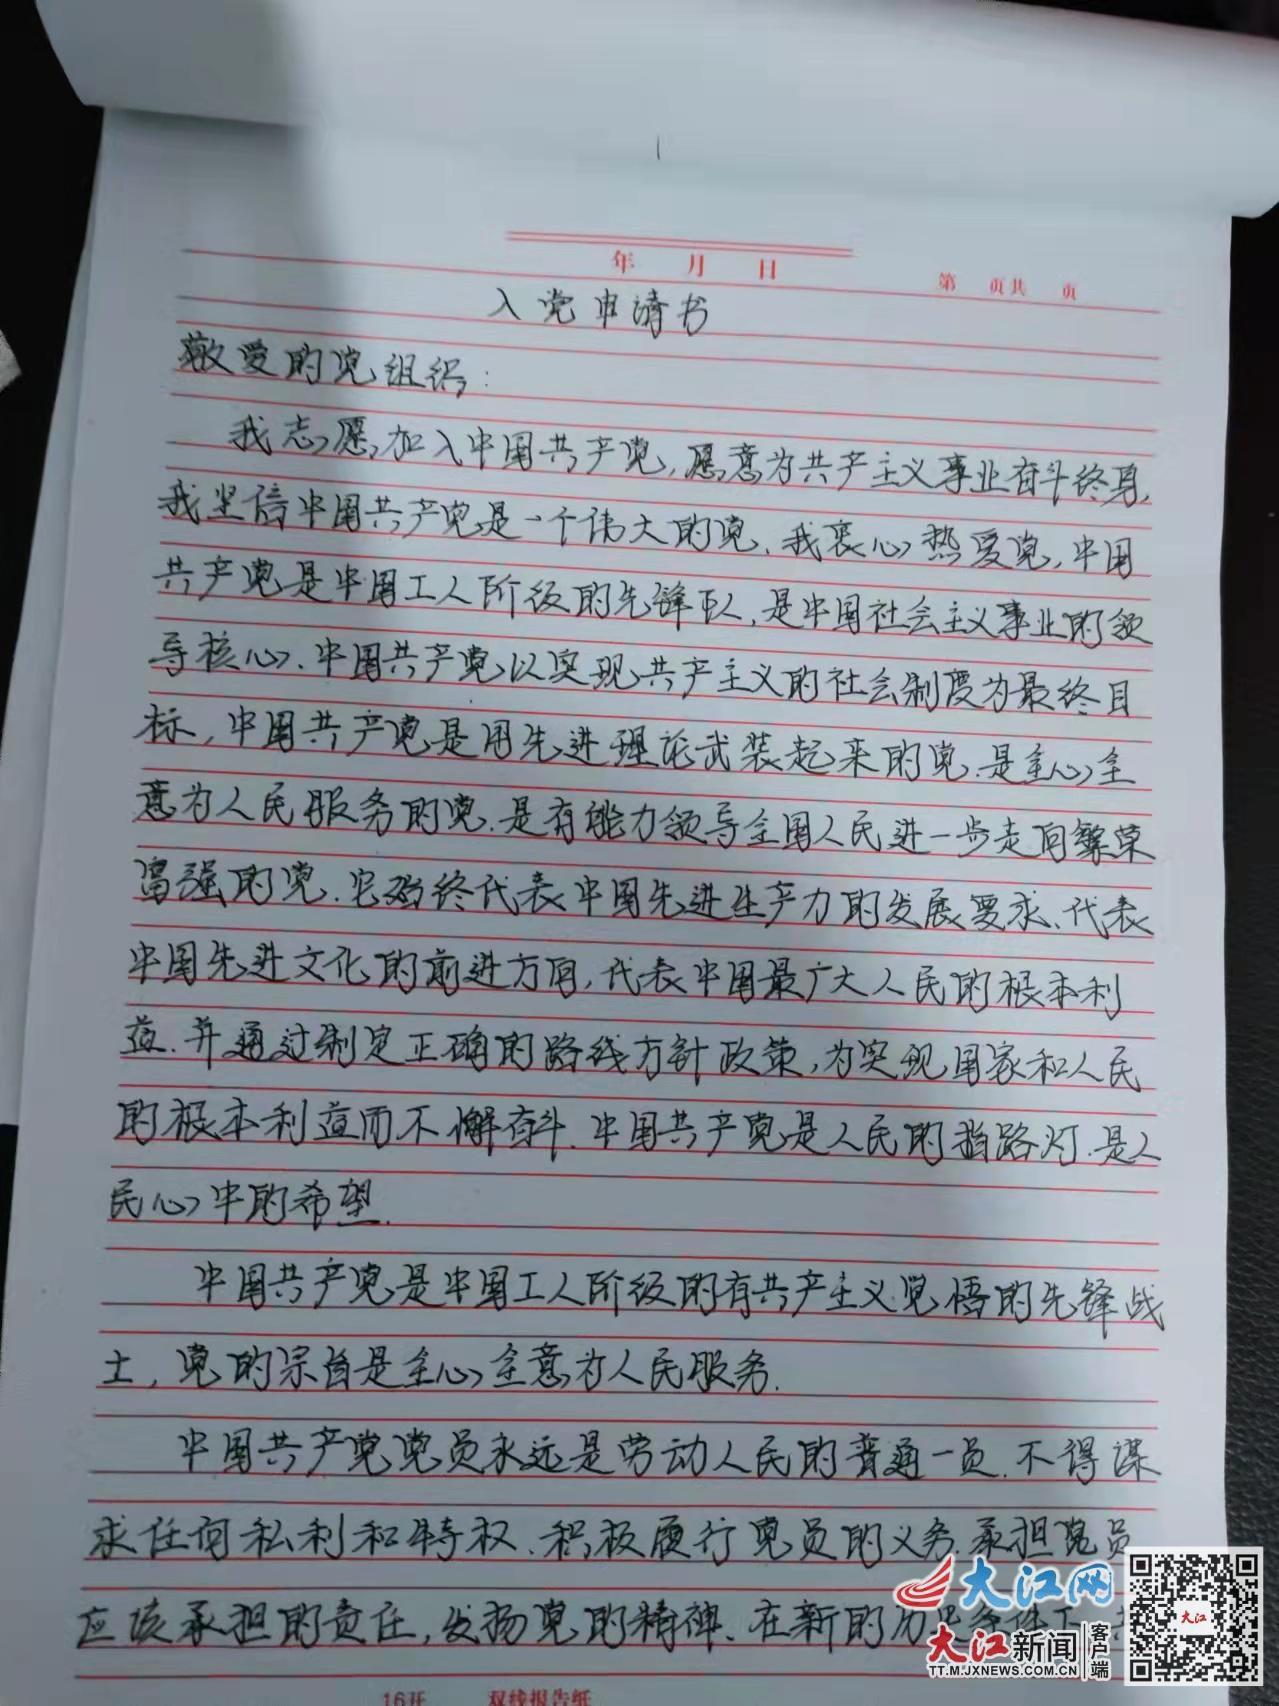 年 月 日
第 页共 页
入党申请书
敬爱的党组织:
我志愿加入中国共产党,愿意为共产主义事业奋斗终身,
我坚信中国共产党是一个伟大的党,我衷心热爱党,中国
共产党是中国工人阶级的先锋队,是中国社会主义事业的领
导核心.中国共产党以实现共产主义的社会制度为最终目
标,中国共产党是用先进理论武装起来的党.是全心全
意为人民服务的党.是有能力领导全国人民进一步走向繁荣
富强的党.它始终代表中国先进生产力的发展要求、代表
中国先进文化的前进方向,代表中国最广大人民的根本利
益.并通过制定正确的路线方针政策,为实现国家和人民
的根本利益而不懈奋斗.中国共产党是人民的指路灯.是人
民心中的希望.
中国共产党是中国工人阶级的有共产主义觉悟的先锋战
士,党的宗旨是全心全意为人民服务.
中国共产党党员永远是劳动人民的普通一员.不得谋
求任何私利和特权.积极履行党员的义务.承担党员
应该承担的责任,发扬党的精神.在新的历史条件下
大江网
大江新闻 客户端
TT.M.JXNEWS.COM.CN
大江
16开 双线报告纸